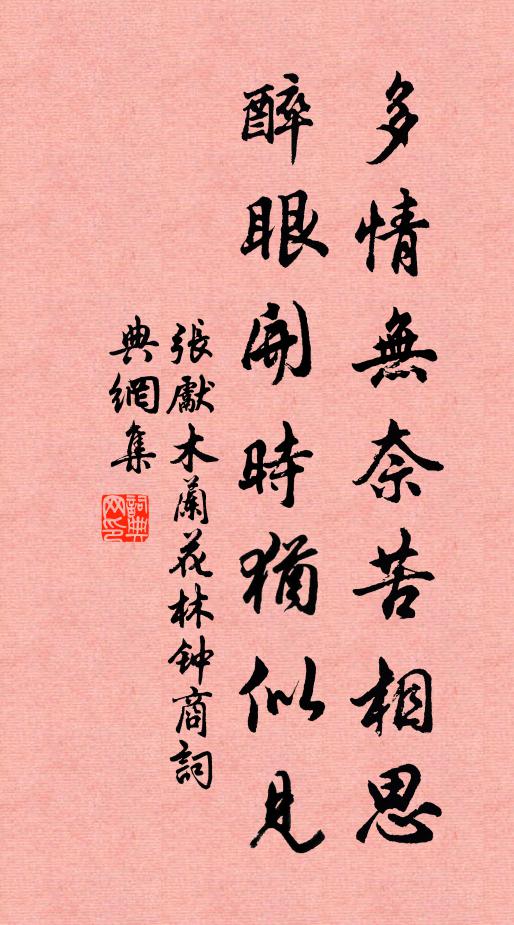 多情無奈苦相思
醉眼開時猶似見
張獻木蘭花林钟商詞
典網集
詞典
网印